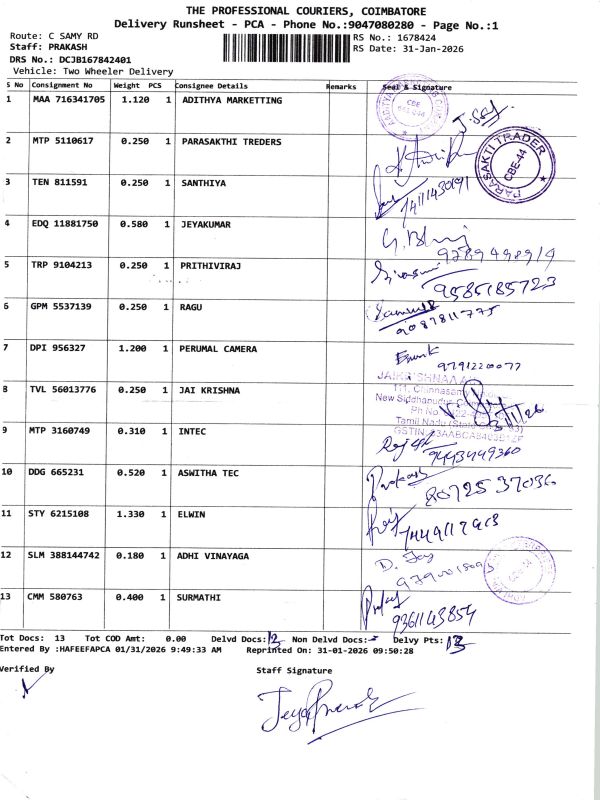 THE PROFESSIONAL COURIERS, COIMBATORE
Delivery Runsheet - PCA - Phone No.:9047080280 - Page No.:1
Route: C SAMY RD
RS No.: 1678424
Staff: PRAKASH
RS Date: 31-Jan-2026
DRS No.: DCJB167842401
Vehicle: Two Wheeler Delivery
S No Consignment No Weight PCS Consignee Details Remarks Seal & Signature
1 MAA 716341705 1.120 1 ADITHYA MARKETTING
2 MTP 5110617 0.250 1 PARASAKTHI TREDERS
PARASAKTI TRADER CBE-44
3 TEN 811591 0.250 1 SANTHIYA
4 EDQ 11881750 0.580 1 JEYAKUMAR
5 TRP 9104213 0.250 1 PRITHIVIRAJ
9585185723
6 GPM 5537139 0.250 1 RAGU
9087811775
7 DPI 956327 1.200 1 PERUMAL CAMERA
9791220077
8 TVL 56013776 0.250 1 JAI KRISHNA
9 MTP 3160749 0.310 1 INTEC
9443449360
10 DDG 665231 0.520 1 ASWITHA TEC
Prakash 8072537036
11 STY 6215108 1.330 1 ELWIN
12 SLM 388144742 0.180 1 ADHI VINAYAGA
13 CMM 580763 0.400 1 SURMATHI
9361143854
Tot Docs: 13 Tot COD Amt: 0.00 Delvd Docs: 13 Non Delvd Docs: - Delvy Pts: 13
Entered By :HAFEEFAPCA 01/31/2026 9:49:33 AM Reprinted On: 31-01-2026 09:50:28
Verified By
Staff Signature